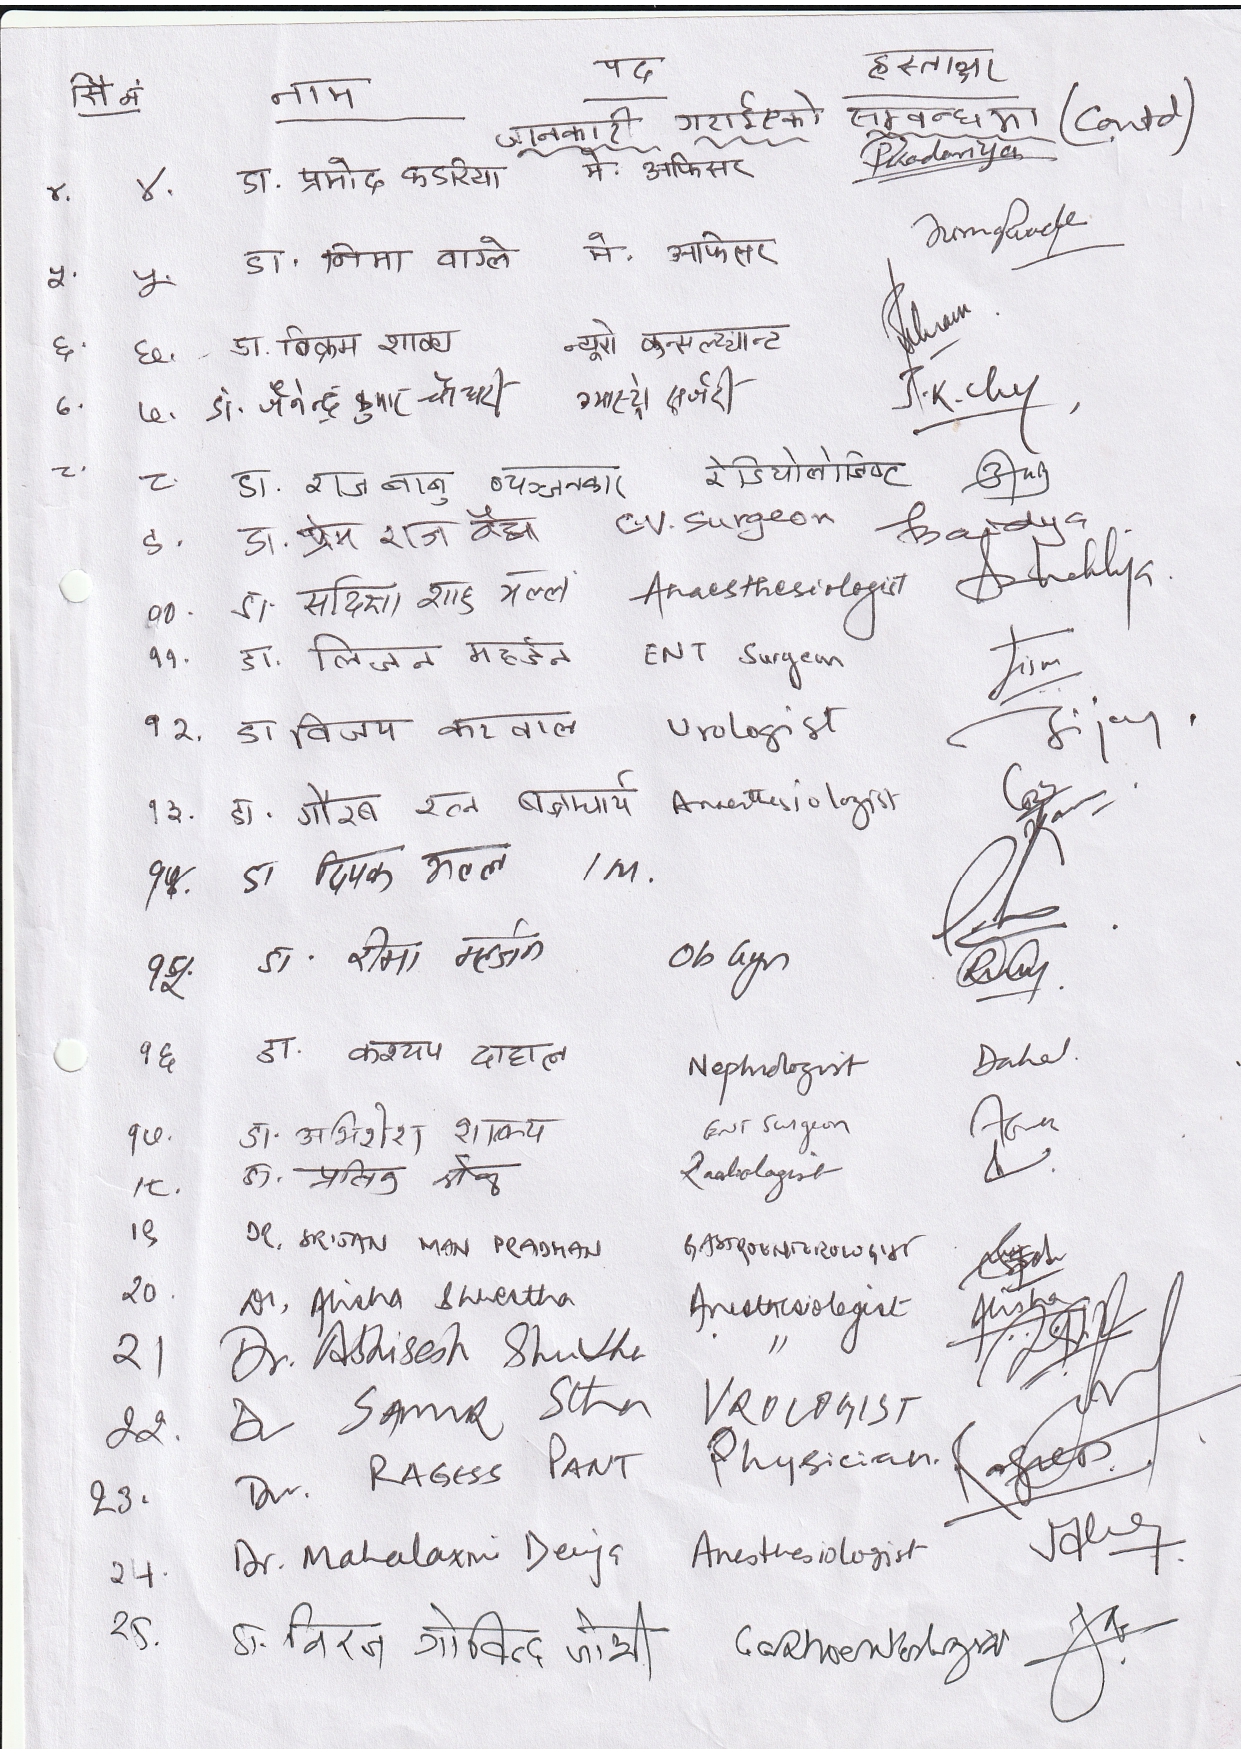 सि नं नाम पद हस्ताक्षर
जानकारी गराईएको सम्बन्धमा (Contd)
४. ४. डा. प्रमोद कडरिया मे. अफिसर Pkadariya
५. ५. डा. निमा वाग्ले मे. अफिसर
६. ६. डा. विक्रम शाक्य न्यूरो कन्सल्ट्यान्ट
७. ७. डा. जैनेन्द्र कुमार चौधरी ग्यास्ट्रो सर्जरी J.K.Chy
८. ८. डा. राज बाबु व्यञ्जनकार रेडियोलोजिष्ट
९. डा. प्रेम राज वैद्य C.V. Surgeon Baidya
१०. डा. सदिक्षा शाह मल्ल Anaesthesiologist
११. डा. लिजन महर्जन ENT Surgeon
१२. डा विजय करवाल Urologist Bijay
१३. डा. गौरब रत्न बज्राचार्य Anaesthesiologist
१४. डा दिपक मल्ल I M.
१५. डा. रीमा महर्जन Ob Gyn
१६ डा. कश्यप दाहाल Nephrologist Dahal
१७. डा. अभिशेष शाक्य ENT Surgeon
१८. डा. Radiologist
19 DR. SRIJAN MAN PRADHAN GASTROENTEROLOGIST
20. Dr. Alisha Shrestha Anesthesiologist Alisha
21 Dr. Abhisesh Shrestha "
22. Dr SAMIR Stha UROLOGIST
23. Dr. RAGESS PANT Physician.
24. Dr. Mahalaxmi Deuja Anesthesiologist
25. डा. विरज गोविन्द जोशी Gastroenterologist